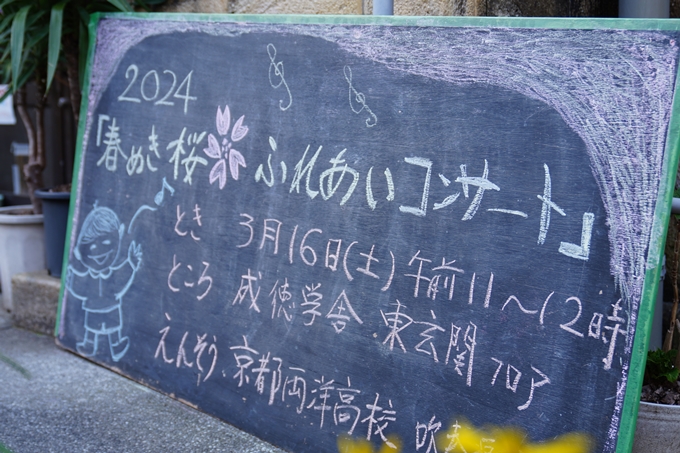 2024
「春めき桜 ふれあいコンサート」
とき 3月16日(土)午前11〜12時
ところ 成徳学舎.東玄関フロア
えんそう.京都両洋高校 吹